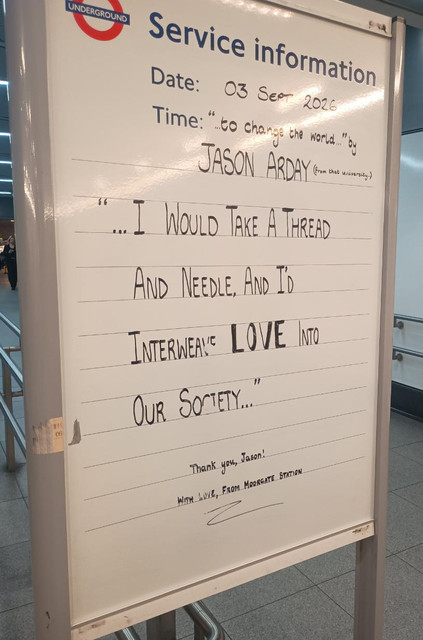 UNDERGROUND
Service information
Date: 03 SEPT 2026
Time: "...to change the world..." by
JASON ARDAY (from that university.)
"...I WOULD TAKE A THREAD
AND NEEDLE, AND I'D
INTERWEAVE LOVE INTO
OUR SOCIETY..."
Thank you, Jason!
WITH LOVE, FROM MOORGATE STATION